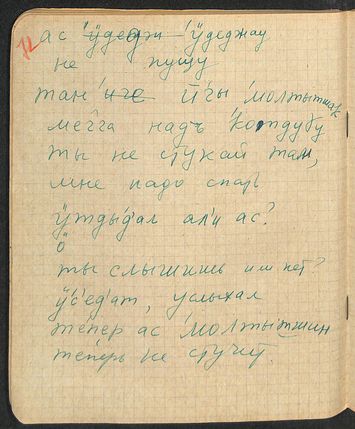 12
ас ӱдеджи ӱдеджау
не пущу
тан инге й'гы молтытшак
ме̄гга надъ котдубу
ты не стукай там,
мне надо спать
ӱтды́д'ал ал'и ас?
ты слышишь или нет?
ӱ'с'ед'ат, услыхал
те́пер ас молтытшин
теперь не стучит.